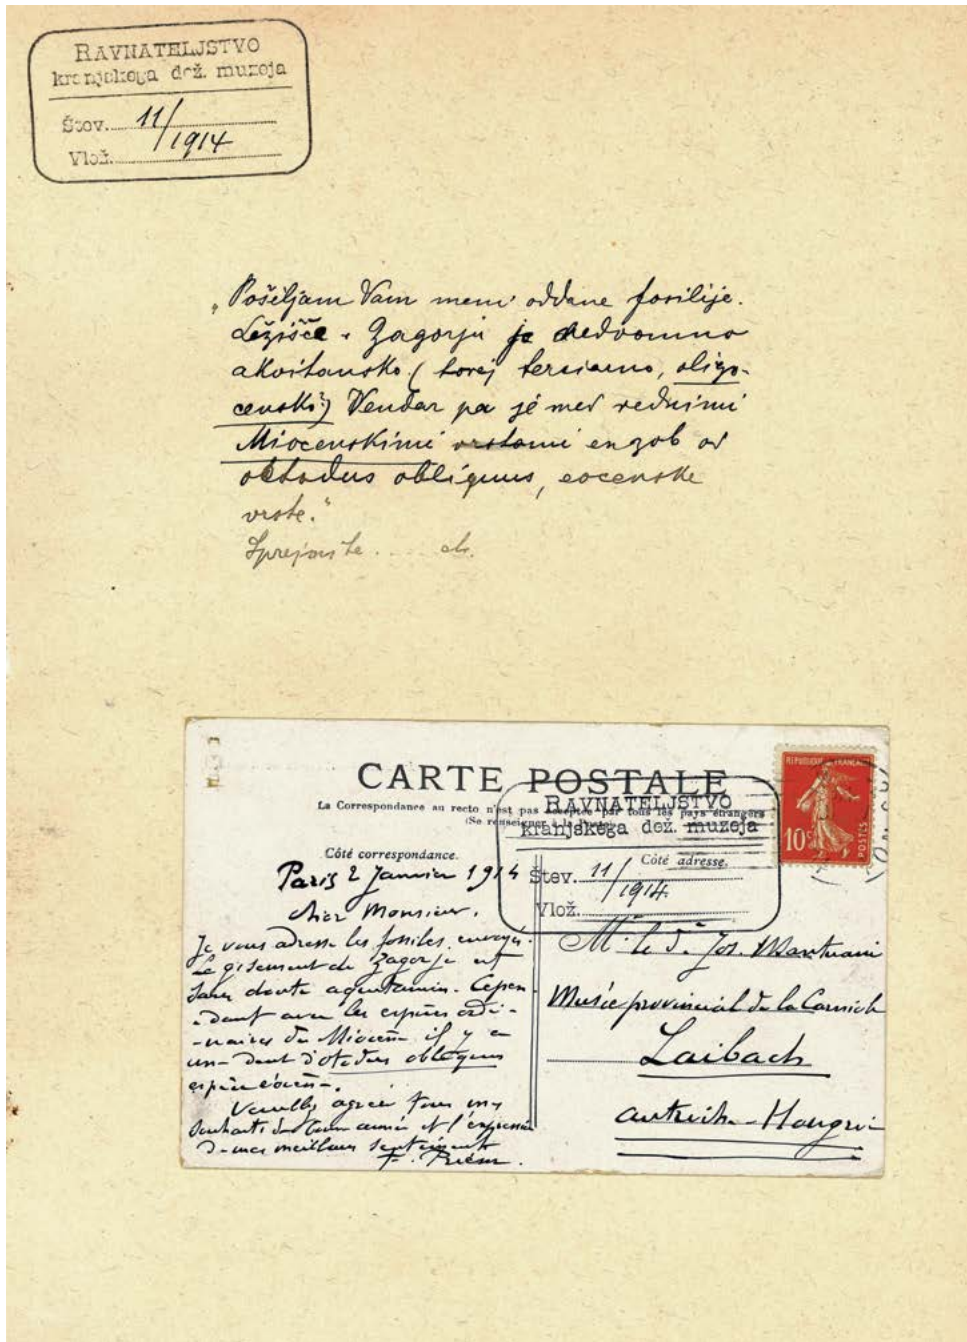 RAVNATELJSTVO
kranjskega dež. muzeja
Štev. 11/
Vlož. 1914
„Pošiljam Vam meni oddane fosilije.
Ležišče v Zagorju je nedvomno
akvitansko. (torej terciarno, oligo-
censko?) Vendar pa je med rednimi
Miocenskimi vrstami en zob od
otodus obliquus, eocenske
vrste."
Sprejmite ....
CARTE POSTALE
La Correspondance au recto n'est pas acceptée par tous les pays étrangers
(Se renseigner à la Poste)
RAVNATELJSTVO
kranjskega dež. muzeja
Štev. 11/
Vlož. 1914
RÉPUBLIQUE FRANÇAISE
10c
POSTES
Côté correspondance.
Côté adresse.
Paris 2 Janvier 1914
Cher Monsieur.
Je vous adresse les fossiles envoyés.
Le gisement de Zagorje est
sans doute aquitanien. Cepen
-dant avec les espèces ordi-
-naires du Miocène il y a
une dent d'otodus obliquus
espèce éocène.
Veuillez agréer tous mes
souhaits de bonne année et l'expression
de mes meilleurs sentiments
F. Priem.
Mr. le Dr. Jos. Mantuani
Musée provincial de la Carniole
Laibach
Autriche-Hongrie